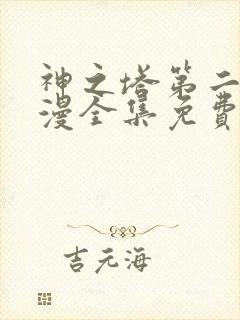 神之塔第二
漫全集免費
吉元海